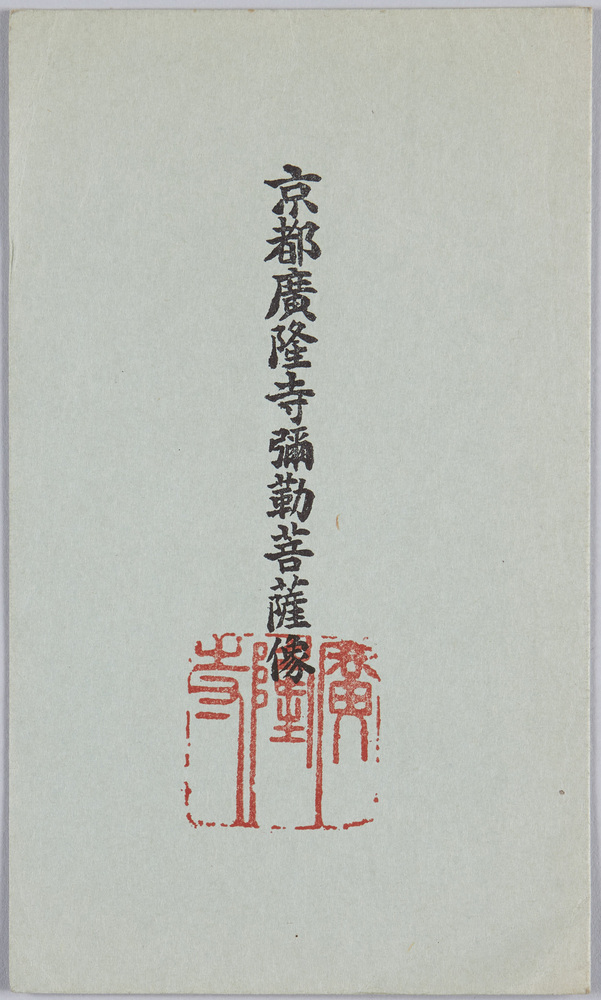 京都廣隆寺彌勒菩薩像
廣隆寺